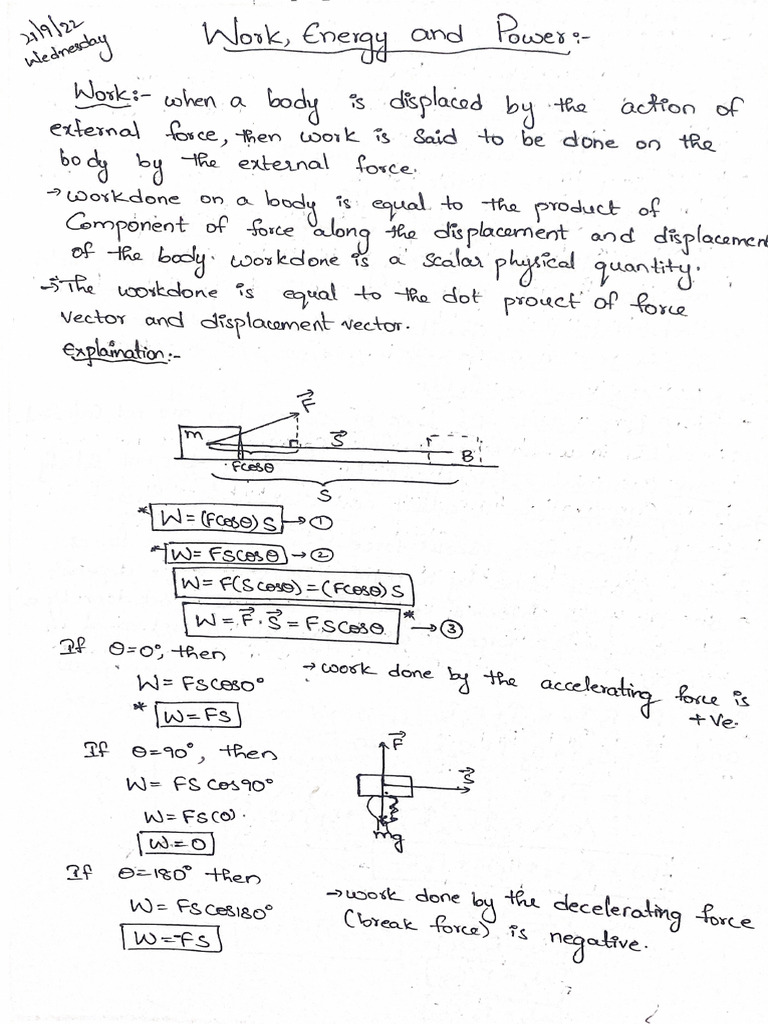 21/9/22
Wednesday
Work, Energy and Power:-
Work:- when a body is displaced by the action of
external force, then work is said to be done on the
body by the external force.
→ workdone on a body is equal to the product of
Component of force along the displacement and displacement
of the body. workdone is a scalar physical quantity.
→ The workdone is equal to the dot prouct of force
vector and displacement vector.
Explaination:-
F⃗
m
S⃗
B
Fcosθ
S
* W = (Fcosθ) S → ①
* W = FScosθ → ②
W = F(Scosθ) = (Fcosθ) S
W = F⃗ . S⃗ = FScosθ * → ③
If θ=0°, then
W = FScos0°
→ work done by the accelerating force is
+ve.
* W = FS
If θ=90°, then
F⃗
W = FS cos90°
S⃗
W = FS(0).
mg
W = 0
If θ=180° then
W = FScos180°
→ work done by the decelerating force
(break force) is negative.
W = -FS